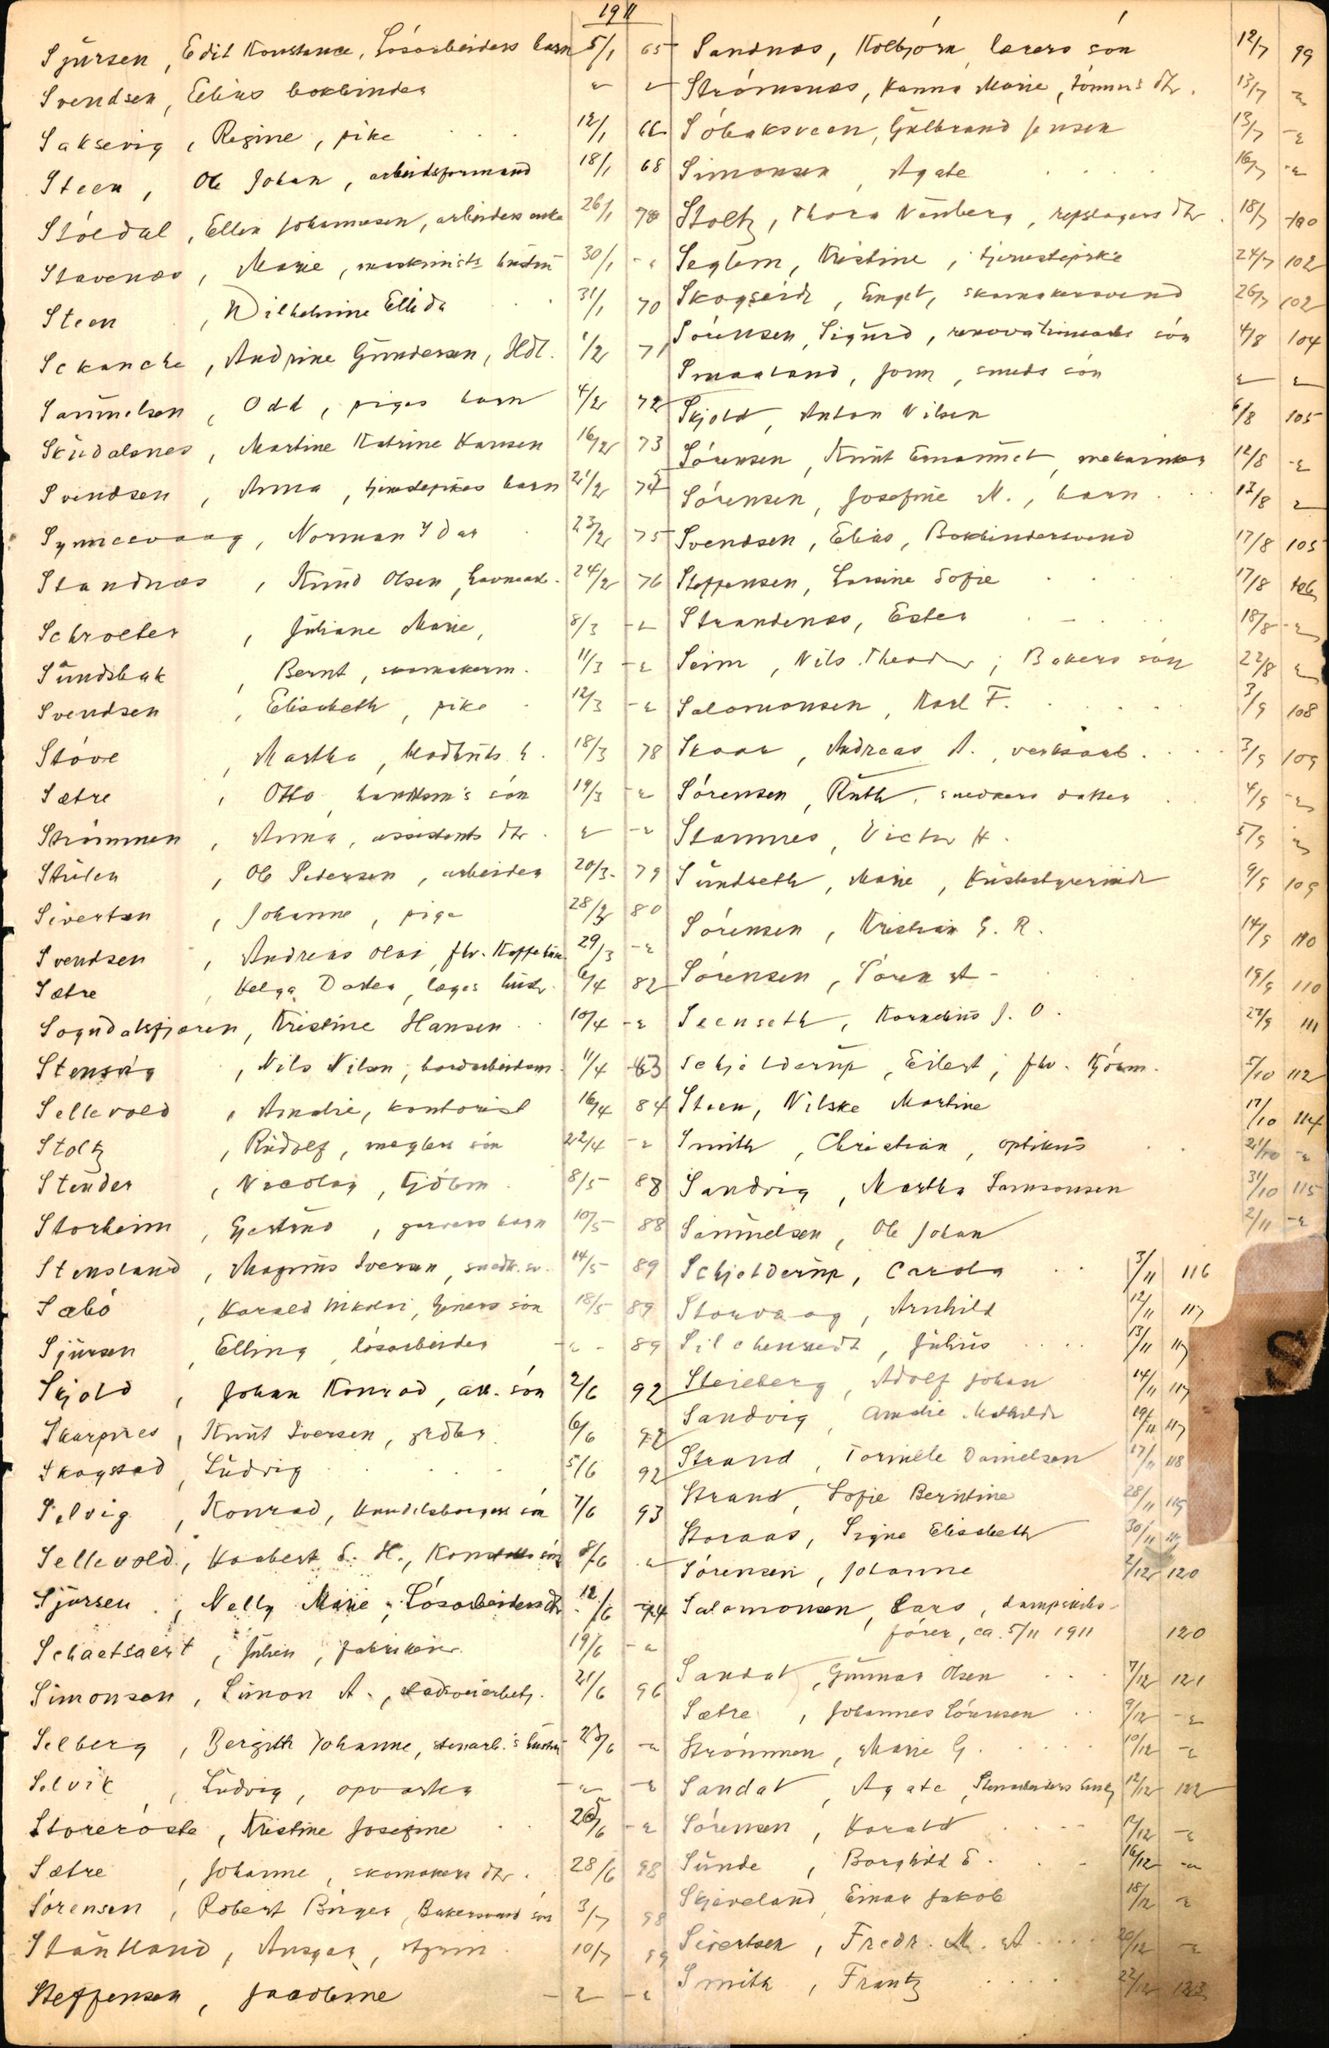 1911
Sjursen, Edit Konstance, Lósarbeiders barn 5/1 65
Svendsen, Elias bokbinder " "
Saksevig, Regine, pike 12/1 66
Steen, Ole Johan, arbeidsformand 18/1 68
Stóldal, Ellen Johannesen, arbeiders enke 26/1 70
Stavenæs, Marie, maskinists hustru 30/1 - "
Steen, Wilhelmine Ellida 31/1 70
Sckancke, Andrine Gundersen, Hdl. 1/2 71
Samuelsen, Odd, piges barn 4/2 72
Skudalsnes, Martine Katrine Hansen 16/2 73
Svendsen, Anna, tjenestepikes barn 21/2 75
Synnesvaag, Norman Ydar 23/2 75
Standnæs, Knud Olsen, 24/2 76
Schroeter, Juliane Marie, 8/3 - "
Sundsbak, Bernt, skomakerm. 11/3 - "
Svendsen, Elisabeth, pike 12/3 - "
Stóve, Martha, 18/3 78
Sætre, Otto, handlem's són 19/3 - "
Strómmen, Anna, assistents dtr. " - "
Stulen, Ole Pedersen, arbeider 20/3 79
Sivertsen, Johanne, pige 28/3 80
Svendsen, Andreas Olai, fhv. 29/3 - "
Sætre, Helga Dorthea, læges hustr. 6/4 82
Sogndalsfjæren, Kristine Hansen 10/4 - "
Stensvig, Nils Nilsen, 11/4 83
Sellevold, Amalie, kontorist 16/4 84
Stoltz, Rudolf, meglers són 22/4 - "
Stender, Nicolay, Kjóbm. 8/5 88
Storheim, Gjertrud, garvers barn 10/5 88
Stensland, Magnus Iversen, snedk. sv. 14/5 89
Sæbó, Harald Nikolai, són 18/5 89
Sjursen, Elling, lósarbeider " - 89
Skjold, Johan Konrad, arb. són 2/6 92
Skarpnes, Knut Iversen, 6/6 92
Skogstad, Ludvig 5/6 92
Selvig, Konrad, Handelsborgers són 7/6 93
Sellevold, Haabert S. H., són 8/6 "
Sjursen, Nelly Marie, Lósarbeiders dtr 12/6 94
Schaetsaert, Julien, fabrikeier 19/6 - "
Simonsen, Simon A., 21/6 96
Selberg, Bergitte Johanne, stenarb.'s hustru 23/6 - "
Selvik, Ludvig, opvarter - " - "
Storeróste, Kristine Josefine 25/6 - "
Sætre, Johanne, skomakers dtr. 28/6 98
Sórensen, Robert Birger, Bakersvend són 3/7 98
Stautland, Ansgar, styrm. 10/7 99
Steffensen, Jacobine - " - "
Sandnæs, Kolbjórn, lærers són 12/7 99
Strómsnæs, Hanna Marie, tómmerm dtr. 13/7 - "
Sóbaksveen, Gulbrand Jensen 13/7 - "
Simonsen, Agate 16/7 - "
Stoltz, Thora Nünberg, repslagers dtr. 18/7 100
Seglem, Kristine, tjenestepike 24/7 102
Skogseid, Engel, skomakersvend 26/7 102
Sórensen, Sigurd, renovationsarb. són 4/8 104
Smaaland, John, smeds són " "
Skjold, Anton Nilsen 6/8 105
Sórensen, Knut Emanuel, mekaniker 12/8 - "
Sórensen, Josefine M., barn 13/8 "
Svendsen, Elias, Bokbindersvend 17/8 105
Steffensen, Larsine Sofie 17/8 106
Strandenæs, Ester 18/8 - "
Seim, Nils Theodor, Bakers són 22/8 "
Salomonsen, Karl F. 3/9 108
Skaar, Andreas A., verksarb. 3/9 109
Sórensen, Ruth, snedkers datter 4/9 - "
Stamnes, Victor H. 5/9 "
Sundseth, Marie, Husbestyrerinde 9/9 109
Sórensen, Kristian G. R. 14/9 110
Sórensen, Sóren A - 19/9 110
Steenseth, Kornelius J. O. 23/9 111
Schjelderup, Eilert, fhv. Kjóbm. 5/10 112
Steen, Nilske Martine 17/10 114
Smith, Christian, optikus 21/10 - "
Sandvig, Martha Samsonsen 31/10 115
Samuelsen, Ole Johan 2/11 - "
Schjelderup, Carola 3/11 116
Storvaag, Arnhild 12/11 117
Silchenstedt, Julius 13/11 117
Steieberg, Adolf Johan 14/11 117
Sandvig, Amalie Mathilde 19/11 117
Strand, Tormille Danielsen 17/11 118
Strand, Sofie Berntine 28/11 119
Storaas, Signe Elisabeth 30/11 119
Sórensen, Johanne 2/12 120
Salomonsen, Lars, dampskibs-
fórer, ca. 5/11 1911 120
Sandal, Gunnar Olsen 7/12 121
Sætre, Johannes Sórensen 9/12 - "
Strómmen, Marie G. 10/12 - "
Sandal, Agate, Stenarbeiders 12/12 122
Sórensen, Harald 12/12 - "
Sunde, Borghild E. 16/12 - "
Skjeveland, Einar Jakob 18/12 - "
Sivertsen, Fredr. M. A. 20/12 - "
Smith, Frantz 22/12 123
S